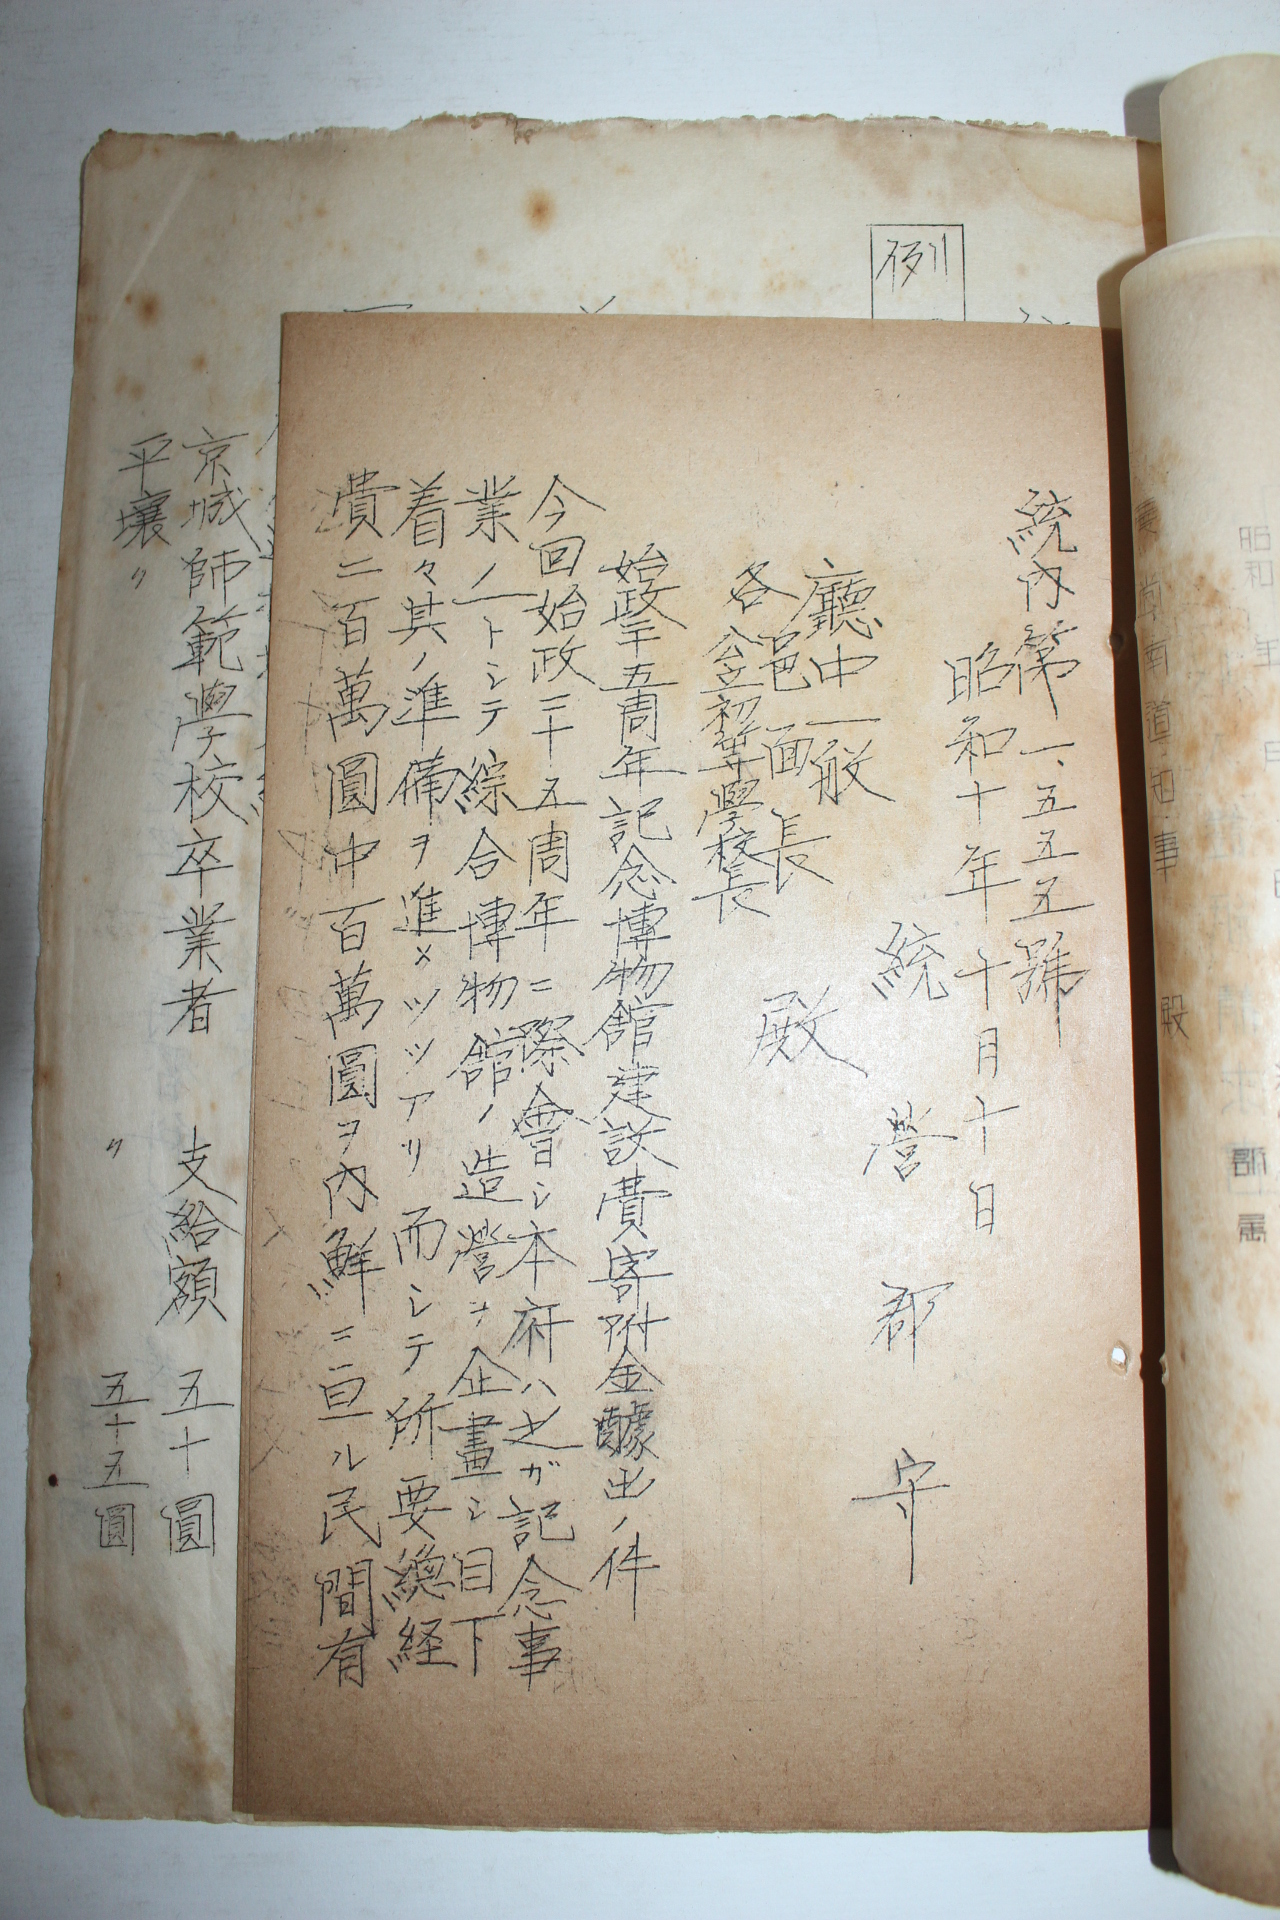 昭和　年　月
慶尚南道知事　殿
郡屬
統內第一、五五五號
昭和十年十月十日
統營郡守
廳中一般
各邑面長　殿
公立初等學校長
始政二十五周年記念博物館建設費寄附金醵出ノ件
今回始政二十五周年ニ際會シ本府ハ之ガ記念事
業ノ一トシテ綜合博物館ノ造營ヲ企畫シ目下
着々其ノ準備ヲ進メツツアリ而シテ所要總経
費二百萬圓中百萬圓ヲ內鮮ニ亘ル民間有
例
京城師範學校卒業者　支給額　五十圓
平壤〃　〃　五十五圓